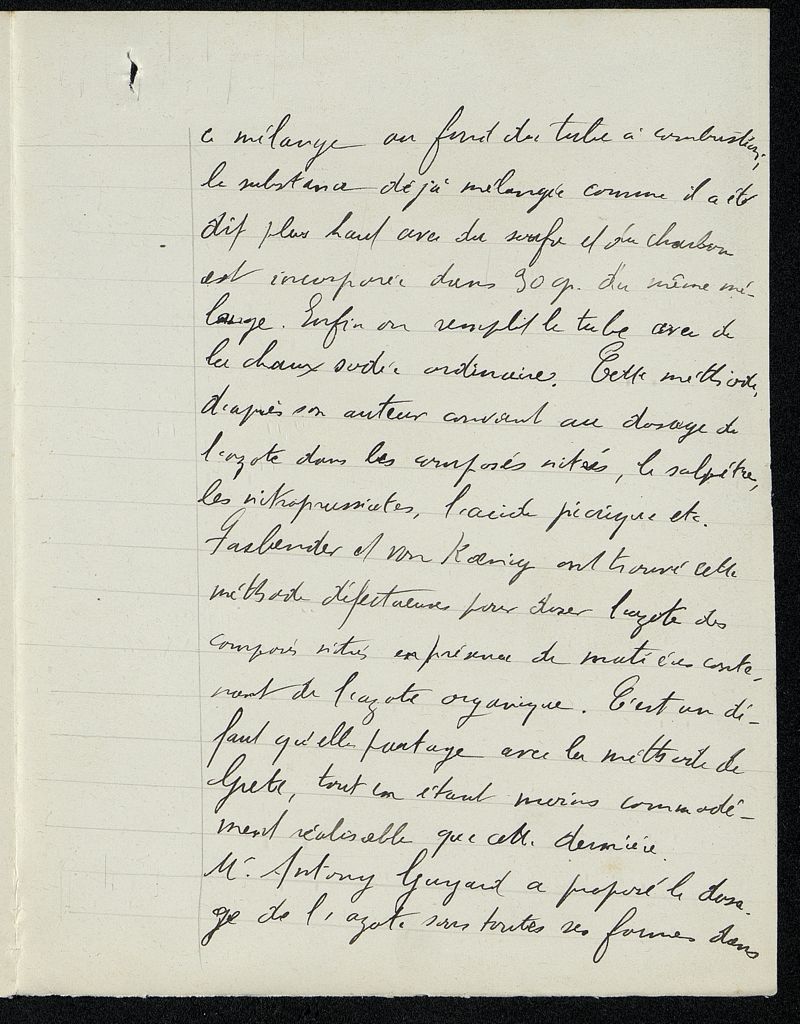 ce mélange au fond du tube à combustion;
la substance déjà mélangée comme il a été
dit plus haut avec du soufre et du charbon
est incorporée dans 30 gr. du même mé-
lange. Enfin on remplit le tube avec de
la chaux sodée ordinaire. Cette méthode,
d'après son auteur convient au dosage de
l'azote dans les composés nitrés, le salpêtre,
les nitroprussiates, l'acide picrique etc.
Fasbender et von Kœnig ont trouvé cette
méthode défectueuse pour doser l'azote des
composés nitrés en présence de matières conte-
nant de l'azote organique. C'est un dé-
faut qu'elle partage avec la méthode de
Grete, tout en étant moins commodé-
ment réalisable que cette dernière.
Mr. Antony Guyard a proposé le dosa-
ge de l'azote sous toutes ses formes dans